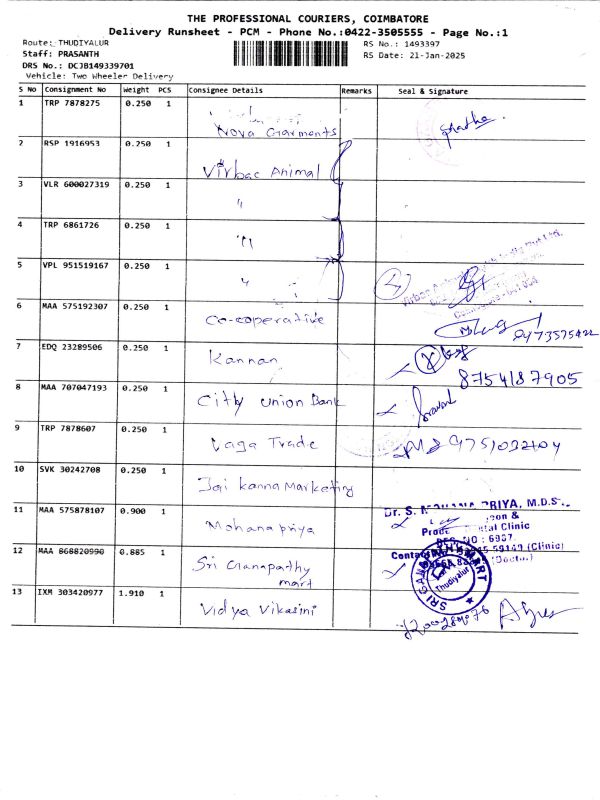 THE PROFESSIONAL COURIERS, COIMBATORE
Delivery Runsheet - PCM - Phone No.:0422-3505555 - Page No.:1
Route: THUDIYALUR RS No.: 1493397
Staff: PRASANTH RS Date: 21-Jan-2025
DRS No.: DCJB149339701
Vehicle: Two Wheeler Delivery
S No Consignment No Weight PCS Consignee Details Remarks Seal & Signature
1 TRP 7878275 0.250 1 Nova Garments
2 RSP 1916953 0.250 1 Virbac Animal
3 VLR 600027319 0.250 1 "
4 TRP 6861726 0.250 1 "
5 VPL 951519167 0.250 1 " 4
6 MAA 575192307 0.250 1 Co-operative
7 EDQ 23289506 0.250 1 Kannan
8754187905
8 MAA 707047193 0.250 1 City Union Bank
9 TRP 7878607 0.250 1 Trade
10 SVK 30242708 0.250 1 Jai Kanna Marketing
11 MAA 575878107 0.900 1 Mohanapriya
Dr. S. PRIYA, M.D.S.,
Clinic
(Clinic)
12 MAA 868820990 0.885 1 Sri Ganapathy mart
SRI GANAPATHY MART
Thudiyalur
13 IXM 303420977 1.910 1 Vidya Vikasini